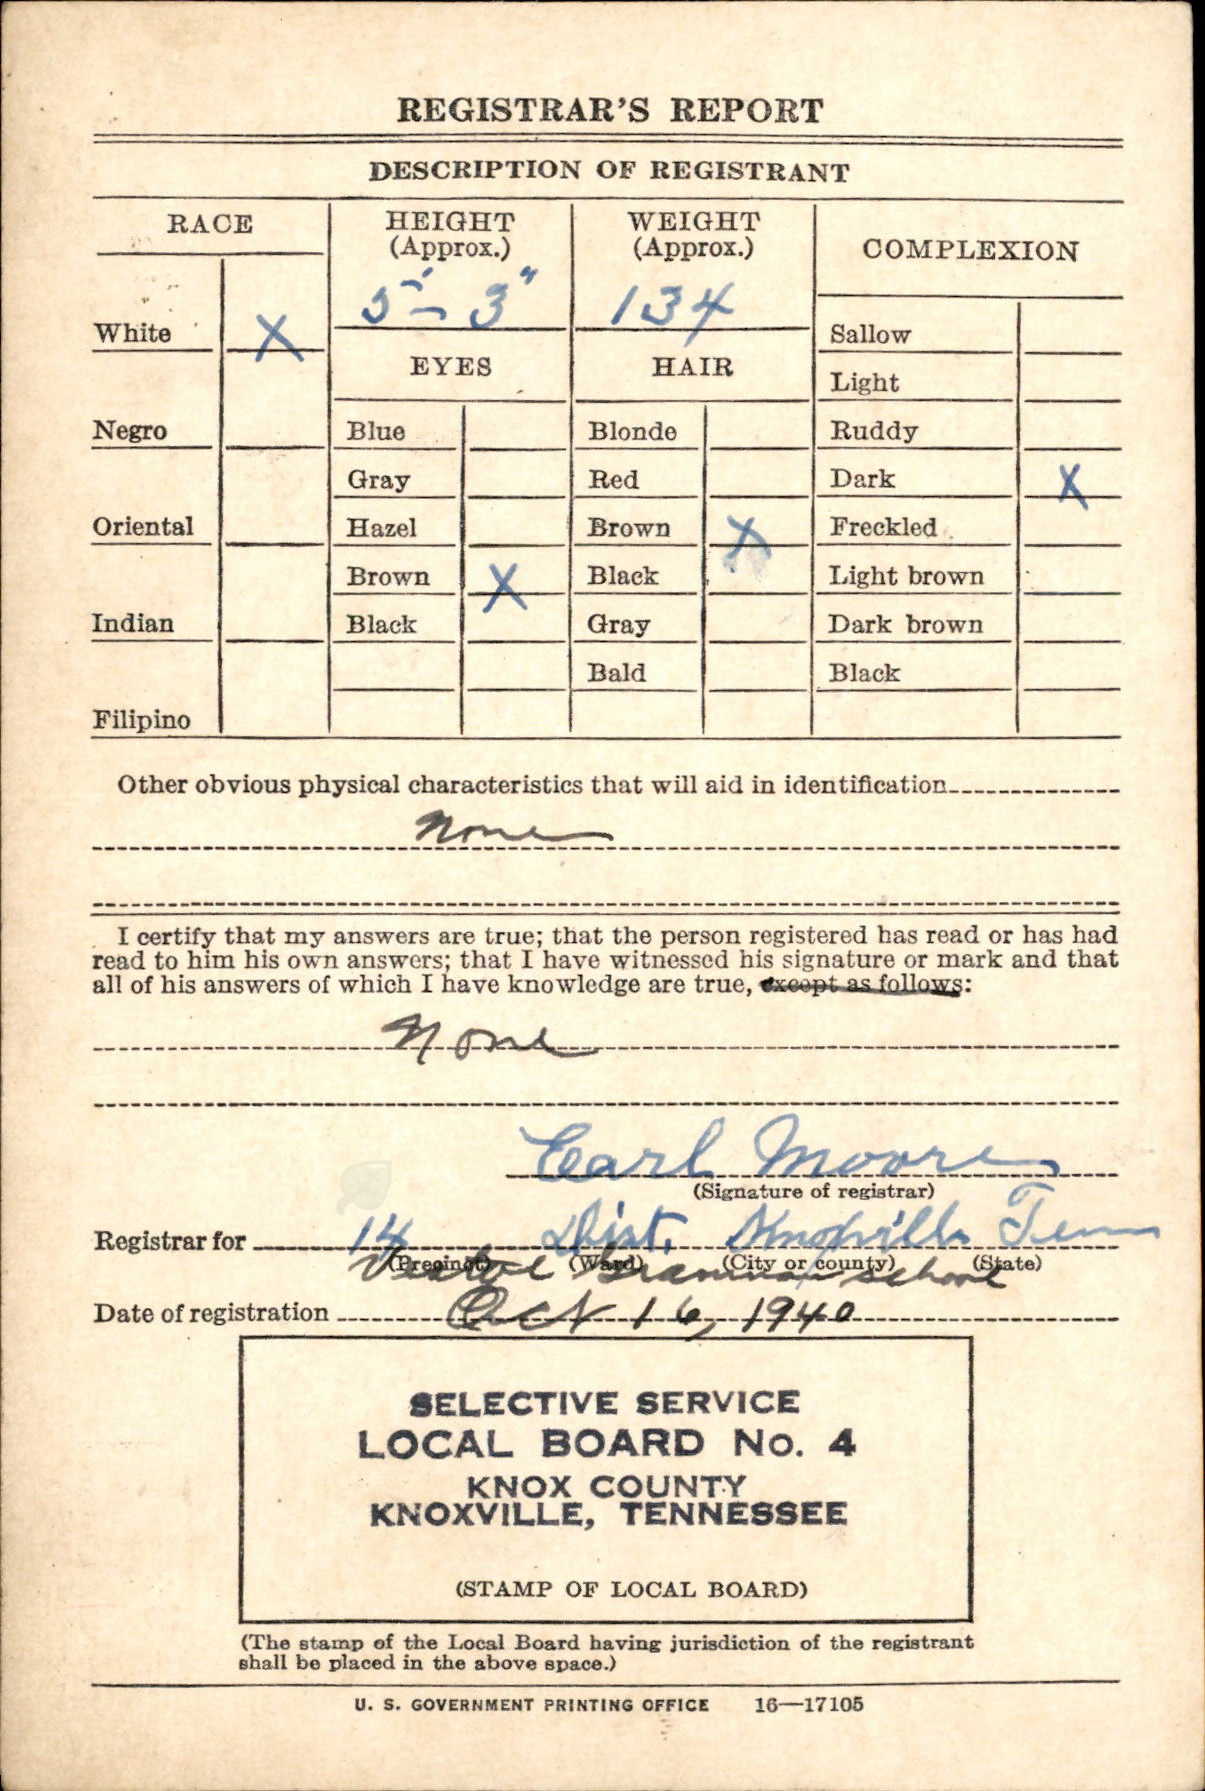 REGISTRAR'S REPORT
DESCRIPTION OF REGISTRANT
RACE
HEIGHT
(Approx.)
WEIGHT
(Approx.)
COMPLEXION
5'-3"
134
White X
Sallow
EYES
HAIR
Light
Negro
Blue
Blonde
Ruddy
Gray
Red
Dark X
Oriental
Hazel
Brown X
Freckled
Brown X
Black
Light brown
Indian
Black
Gray
Dark brown
Bald
Black
Filipino
Other obvious physical characteristics that will aid in identification
None
I certify that my answers are true; that the person registered has read or has had
read to him his own answers; that I have witnessed his signature or mark and that
all of his answers of which I have knowledge are true, except as follows:
None
Earl Moore
(Signature of registrar)
Registrar for 14 Dist. Knoxville Tenn
(Precinct) (Ward) (City or county) (State)
Grammar School
Date of registration Oct 16, 1940
SELECTIVE SERVICE
LOCAL BOARD No. 4
KNOX COUNTY
KNOXVILLE, TENNESSEE
(STAMP OF LOCAL BOARD)
(The stamp of the Local Board having jurisdiction of the registrant
shall be placed in the above space.)
U. S. GOVERNMENT PRINTING OFFICE 16—17105